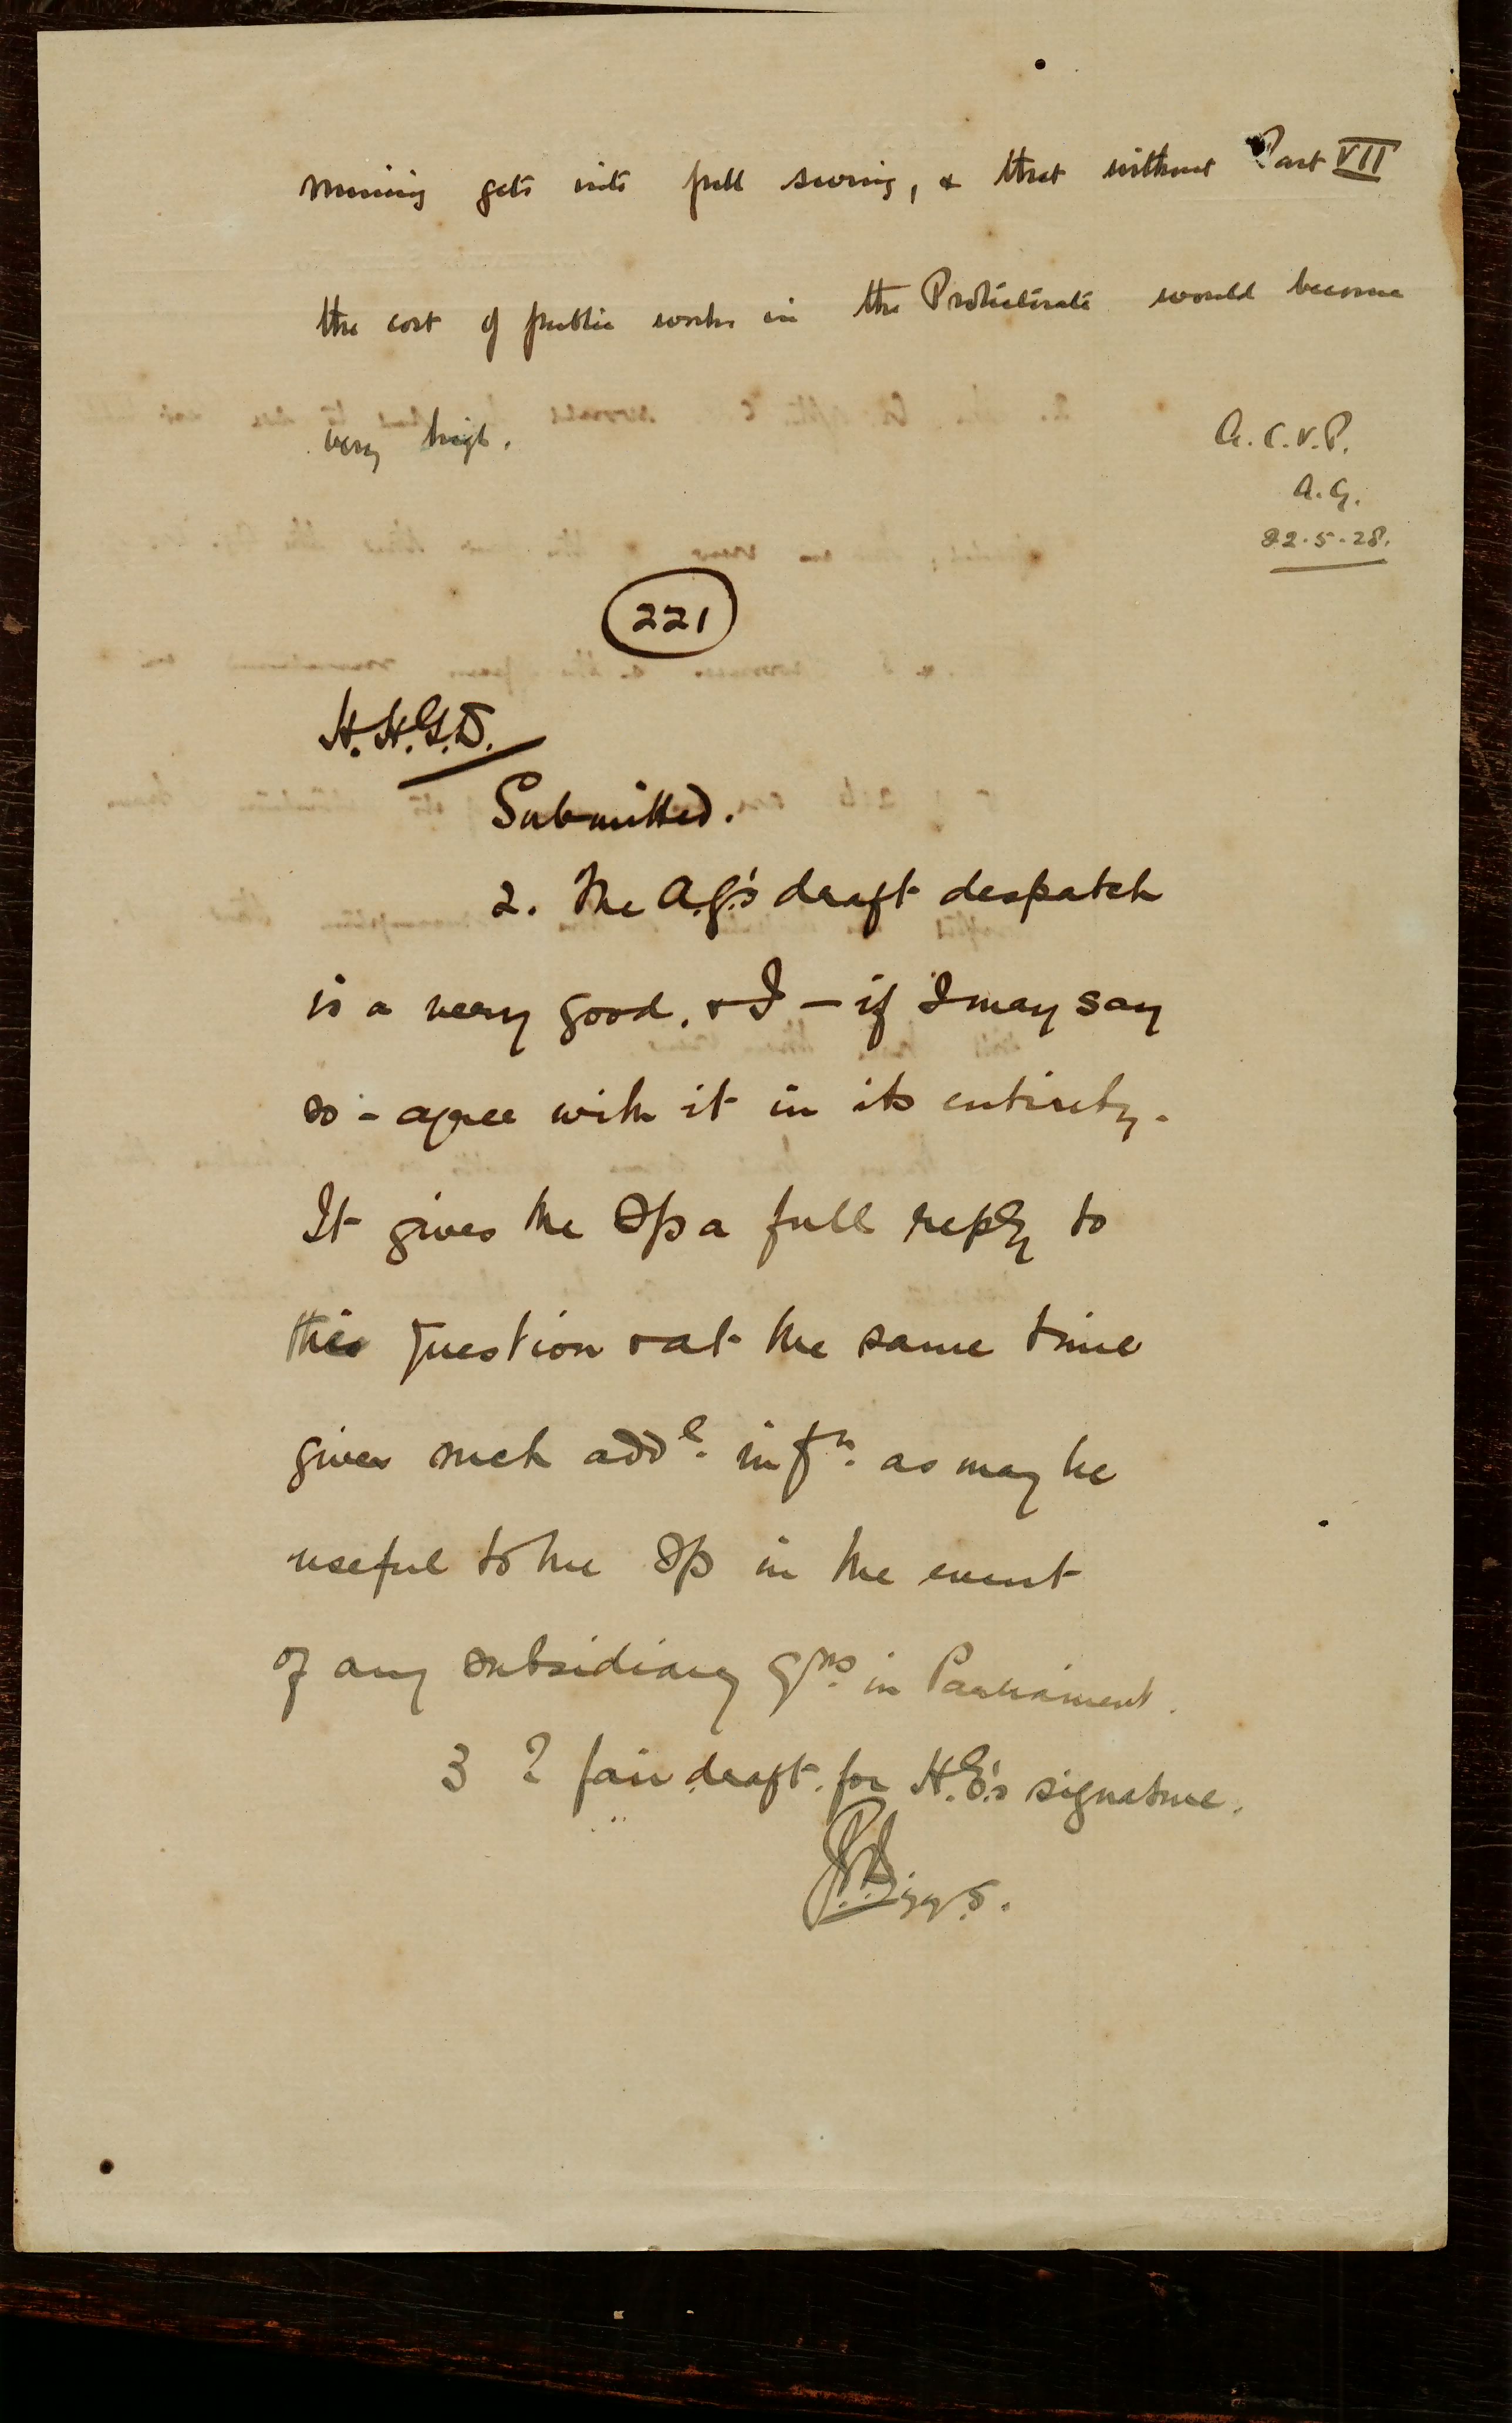 mining gets into full swing, & that without Part VII
the cost of public works in the Protectorate would become
very high.
A.C.V.P.
A.G.
22.5.28.
221
H.H.G.D.
Submitted.
2. The A.G's draft despatch
is a very good, & I — if I may say
so - agree with it in its entirety.
It gives the S/S a full reply to
this question & at the same time
gives such addl. infn. as may be
useful to the S/S in the event
of any subsidiary qns. in Parliament.
3 ? fair draft for H.E's signature.
Biggs.